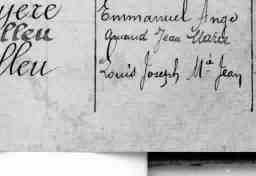 uyere Emmanuel Ange
lleu Armand Jean Marie
lleu Louis Joseph Mie Jean